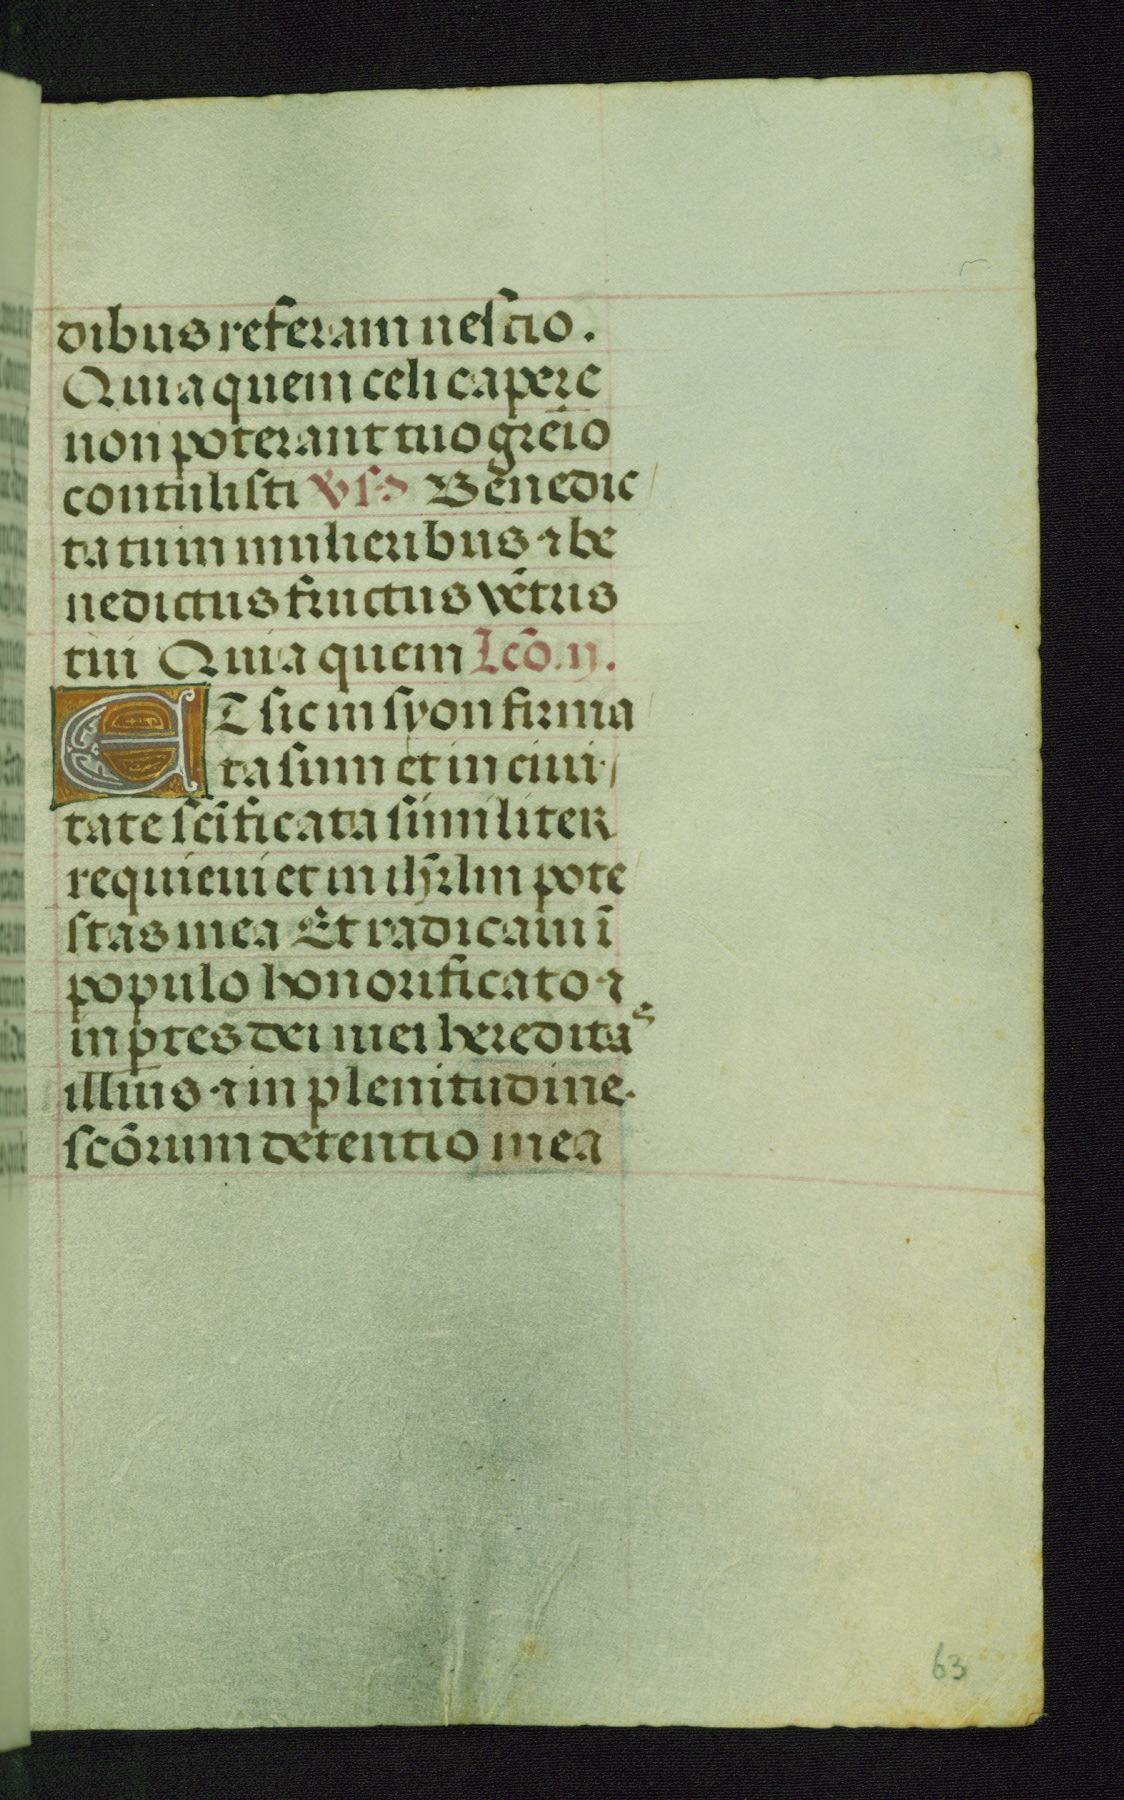 dibus referam nescio.
Quia quem celi capere
non poterant tuo gre͂io
contulisti v̾s᷒ Benedic
ta tu in mulieribus ⁊ be
nedictus fructus ve͂tris
tui Quia quem Lc͂o.ij.
ET sic in syon firma
ta sum et in ciui
tate sc͂ificata similiter
requieui et in ihr͂lm pote
stas mea Et radicaui ĩ
populo honorificato ⁊
in ꝑtes dei mei heredita
s
illius ⁊ in plenitudine
sco͂rum detentio mea
63